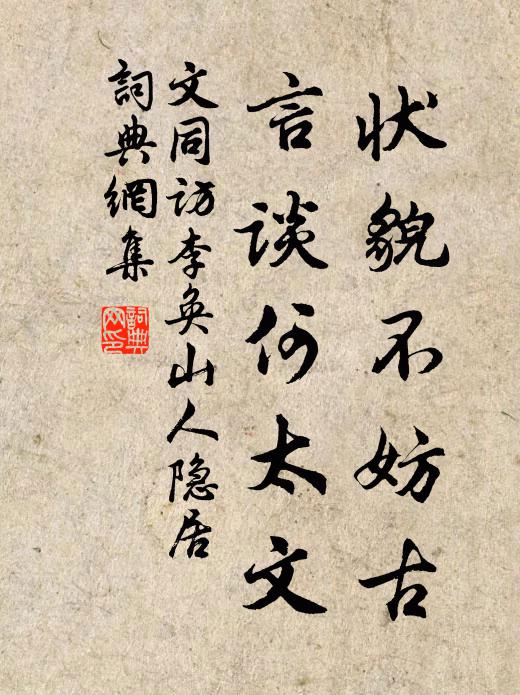 状貌不妨古
言谈何太文
文同访李奂山人隐居
詞典網集
詞典
网印